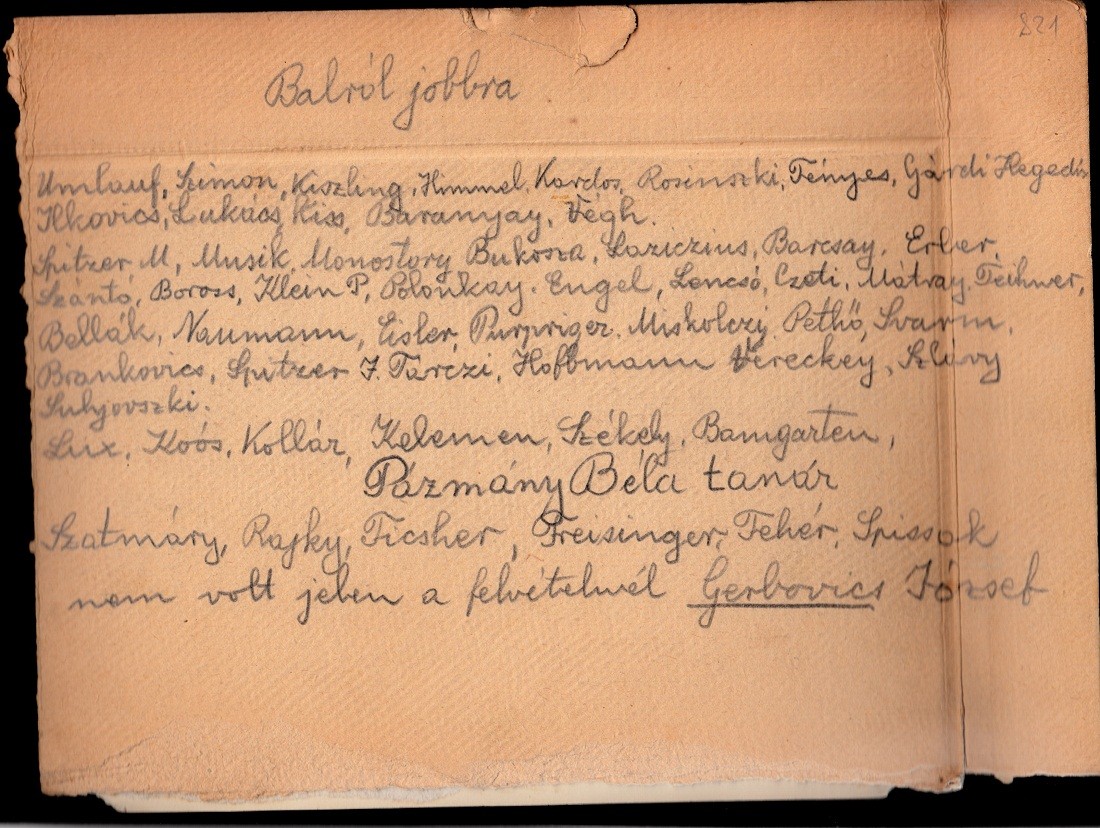 821
Balról jobbra
Umlauf, Szimon, Kiszling, Himmel, Kardos, Rosinszki, Fényes, Gárdi Hegedűs
Ilkovics, Lukács, Kiss, Baranyay, Végh.
Spitzer M, Musik, Monostory Bukosza, Laziczius, Barcsay, Erber,
Szántó, Boross, Klein P, Polonkay. Engel, Lencsó, Czeti, Mátray, Teihner,
Bellák, Naumann, Eisler, Purpriger. Miskolczy Pethő, Svarm,
Brankovics, Spitzer J. Tarczi, Hoffmann Vereckey, Szlávy
Sulyovszki.
Lux, Koós, Kollár, Kelemen, Székely, Bamgarten,
Pázmány Béla tanár
Szatmáry, Rajky, Ficsher, Freisinger, Fehér, Spissak
nem volt jelen a felvételnél Gerbovics József